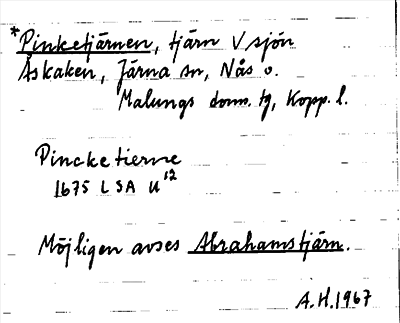 *Pinketjärnen, tjärn V sjön
Åskaken, Järna sn, Nås o.
Malungs doms. tg, Kopp. l.
Pincketierne
1675 LSA U¹²
Möjligen avses Abrahamstjärn.
A.H. 1967